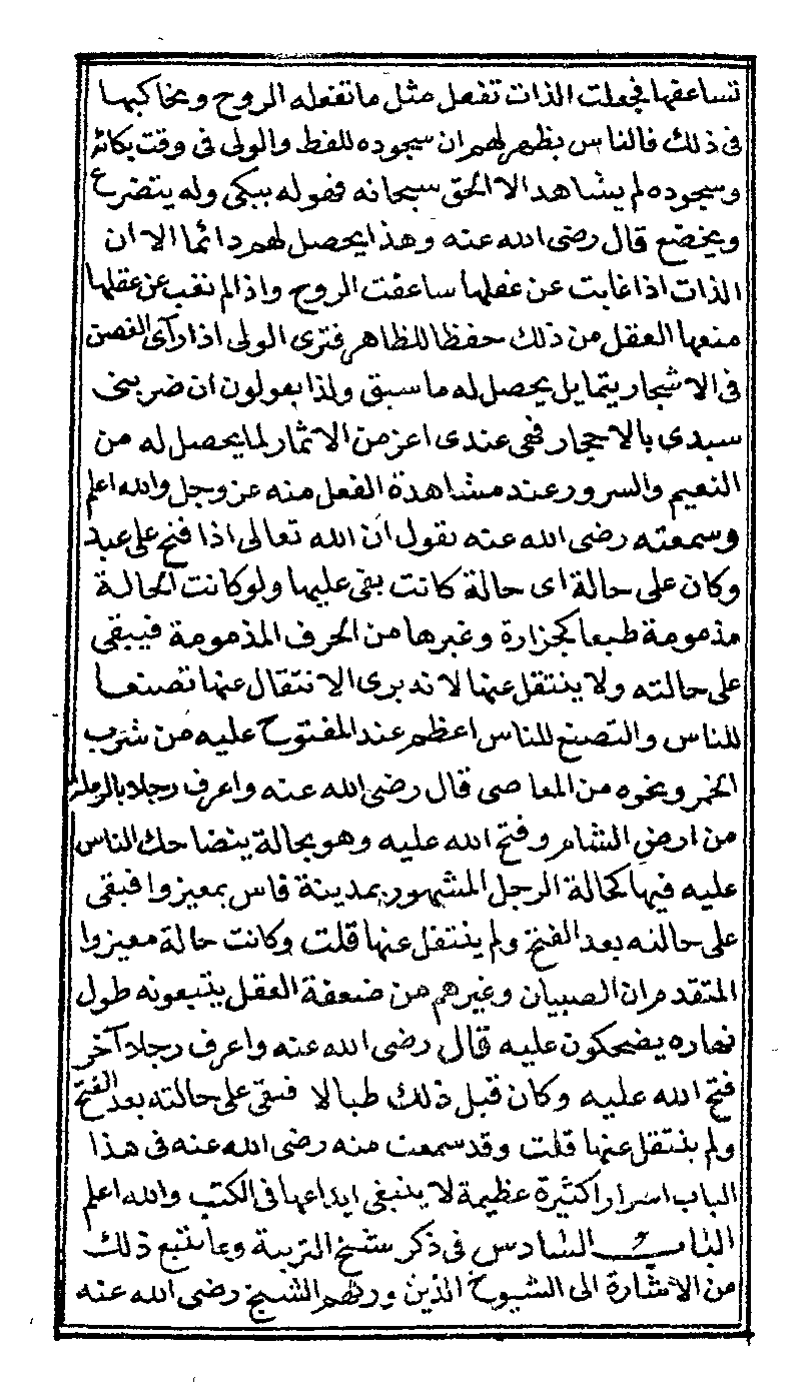 تساعفها فجعلت الذات تفعل مثل ما تفعله الروح ويحاكيها
فى ذلك فالناس يظهر لهم ان سجوده للقط والولى فى وقت بكائه
وسجوده لم يشاهد الا الحق سبحانه فقوله يبكى وله يتضرع
ويخضع قال رضى الله عنه وهذا يحصل لهم دائما الا ان
الذات اذا غابت عن عقلها ساعفت الروح واذا لم تغب عن عقلها
منعها العقل من ذلك حفظا للظاهر فترى الولى اذا رآى الغصن
فى الاشجار يتمايل يحصل له ما سبق ولذا يقولون ان ضربنى
سيدى بالاحجار فهى عندى اعز من الاثمار لما يحصل له من
النعيم والسرور عند مشاهدة الفعل منه عز وجل والله اعلم
وسمعته رضى الله عنه يقول ان الله تعالى اذا فتح على عبد
وكان على حالة اى حالة كانت بقى عليها ولو كانت الحالة
مذمومة طبعا كجزارة وغيرها من الحرف المذمومة فيبقى
على حالته ولا ينتقل عنها لانه يرى الانتقال عنها تصنعا
للناس والتصنع للناس اعظم عند المفتوح عليه من شرب
الخمر ونحوه من المعاصى قال رضى الله عنه واعرف رجلا بالرملة
من ارض الشام وفتح الله عليه وهو بحالة يتضاحك الناس
عليه فيها كحالة الرجل المشهور بمدينة فاس بمعيزوا فبقى
على حالته بعد الفتح ولم ينتقل عنها قلت وكانت حالة معيزوا
المتقدم ان الصبيان وغيرهم من ضعفة العقل يتبعونه طول
نهاره يضحكون عليه قال رضى الله عنه واعرف رجلا آخر
فتح الله عليه وكان قبل ذلك طبالا فبقى على حالته بعد الفتح
ولم ينتقل عنها قلت وقد سمعت منه رضى الله عنه فى هذا
الباب اسرارا كثيرة عظيمة لا ينبغى ايداعها فى الكتب والله اعلم
الباب السادس فى ذكر شيخ التربية وما يتبع ذلك
من الاشارة الى الشيوخ الذين ورثهم الشيخ رضى الله عنه